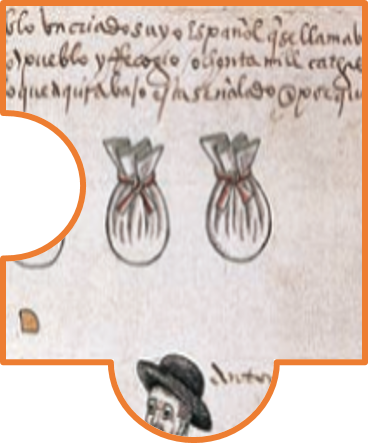 blo vn criado suyo Español q̃ se llamab
o pueblo y Recogio ochenta mill
o que aquí abajo señalado
Anto